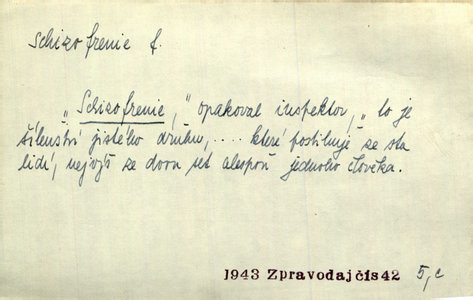 Schizofrenie f.
„Schizofrenie," opakoval inspektor, „to je
šílenství jistého druhu, .... které postihuje ze sta
lidí, nejvýš ze dvou set alespoň jednoho člověka.
1943 Zpravodajčis42 5, c